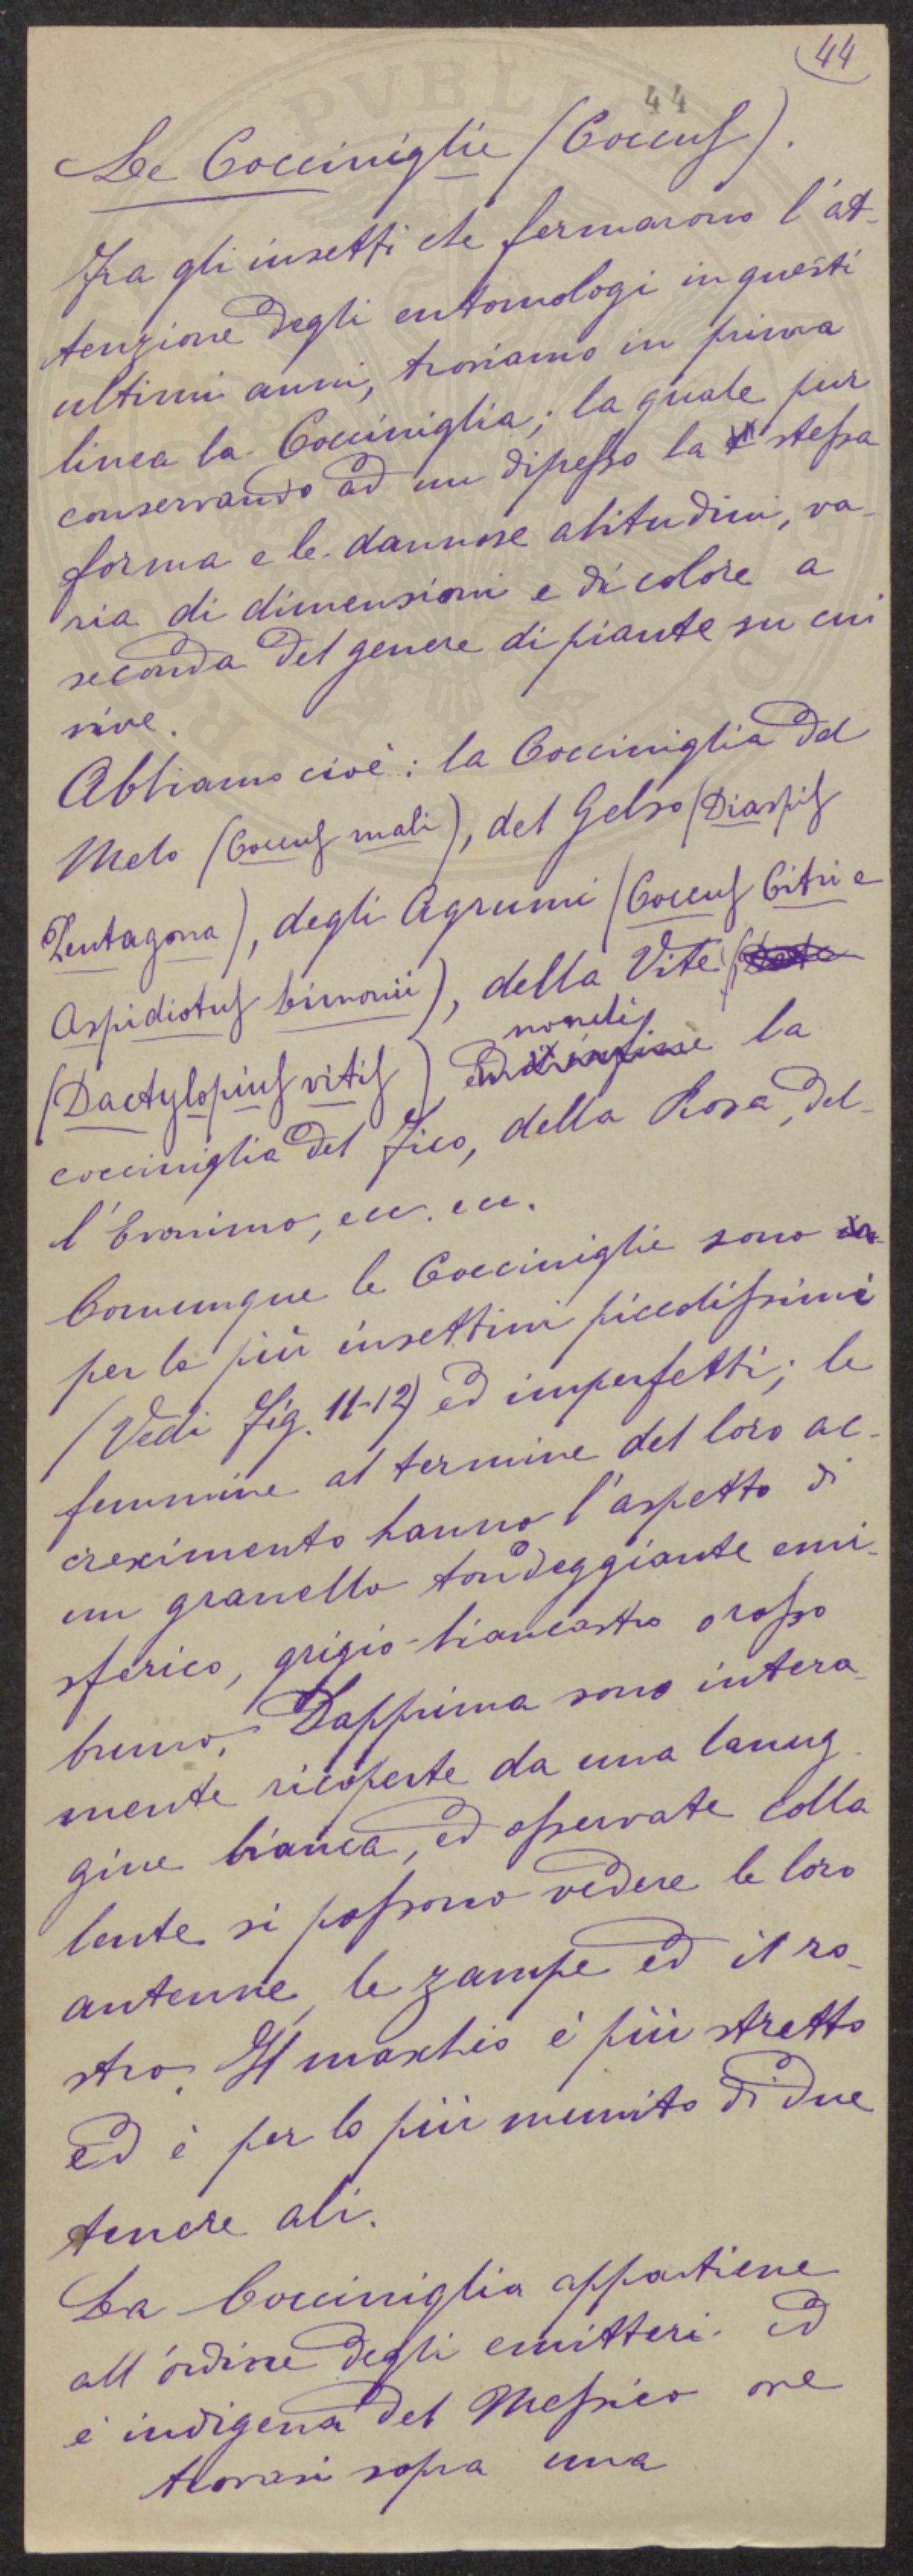 44
44
Le Cocciniglie (Coccus).
Fra gli insetti che fermarono l'at-
tenzione degli entomologi in questi
ultimi anni, troviamo in prima
linea la Cocciniglia; la quale pur
conservando ad un dipesso la stessa
forma e le dannose abitudini, va-
ria di dimensioni e di colore a
seconda del genere di piante su cui
vive.
Abbiamo cioè: la Cocciniglia del
Melo (Coccus mali), del Gelso (Diaspis
Pentagona), degli Agrumi (Coccus Citri e
Aspidiotus Limonii), della Vite
(Dactylopius vitis) nonché la
cocciniglia del Fico, della Rosa, del-
l'Evonimo, ecc. ecc.
Comunque le Cocciniglie sono
per lo più insettini piccolissimi
(Vedi Fig. 11-12) ed imperfetti; le
femmine al termine del loro ac-
crescimento hanno l'aspetto di
un granello tondeggiante emi-
sferico, grigio-biancastro o rosso
bruno. Dapprima sono intera-
mente ricoperte da una lanug-
gine bianca, ed osservate colla
lente si possono vedere le loro
antenne, le zampe ed il ro-
stro. Il maschio è più stretto
ed è per lo più munito di due
tenere ali.
La Cocciniglia appartiene
all'ordine degli emitteri ed
è indigena del Messico ove
trovasi sopra una